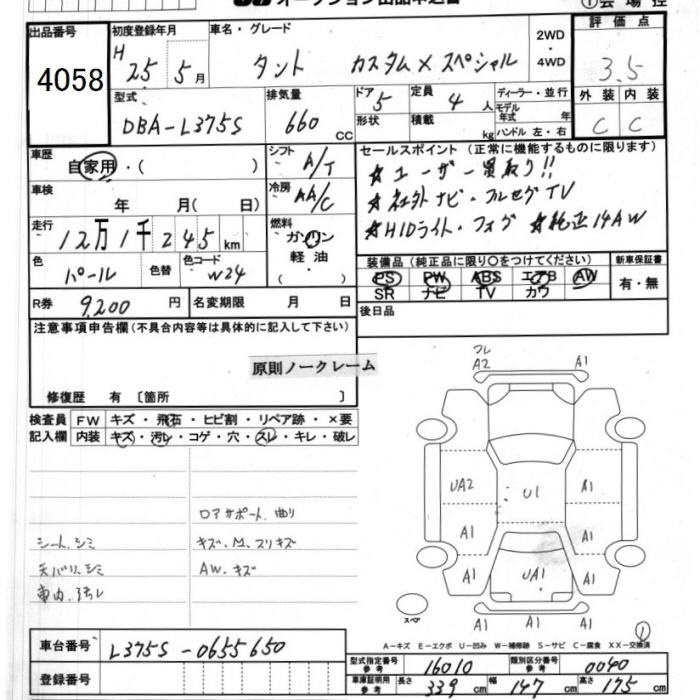 オークション出品申込書 ①会場控
出品番号 初度登録年月 車名・グレード 2WD・4WD 評価点
4058 H 25 5月 タント カスタムX スペシャル 3.5
型式 排気量 ドア 5 定員 4人 ディーラー・並行 外装 内装
DBA-L375S 660 CC 形状 積載 kg モデル年式 年 ハンドル 左・右 C C
車歴 自家用・( ) シフト A/T セールスポイント(正常に機能するものに限ります)
☆ユーザー買取り!!
車検 年 月(日) 冷房 AA/C
☆社外ナビ・フルセグTV
走行 12万1千245km 燃料 ガソリン・軽油・
☆HIDライト・フォグ ☆純正14AW
色 パール 色替 色コード W24 装備品(純正品に限り○をつけてください) 新車保証書
PS PW ABS エアB AW 有・無
SR ナビ TV カワ
R券 9,200円 名変期限 月 日 後日品
注意事項申告欄(不具合内容等は具体的に記入して下さい)
原則ノークレーム
修復歴 有〔箇所 〕
検査員 FW キズ・飛石・ヒビ割・リペア跡・×要
記入欄 内装 キズ・汚レ・コゲ・穴・スレ・キレ・破レ
フレ
A2 A1
UA2 U1 A1
A1 A1
A1 UA1 A1
A1 A1
スペア
ロアサポート.曲り
シート.シミ キズ、M.スリキズ
天バリ.シミ AW.キズ
車内.汚レ
①
A-キズ E-エクボ U-凹み W-補修跡 S-サビ C-腐食 XX-交換済
車台番号 L375S-0655650
型式指定番号参考 16010 類別区分番号参考 0040
登録番号 車庫証明用参考 長さ 339cm 幅 147cm 高さ 175cm